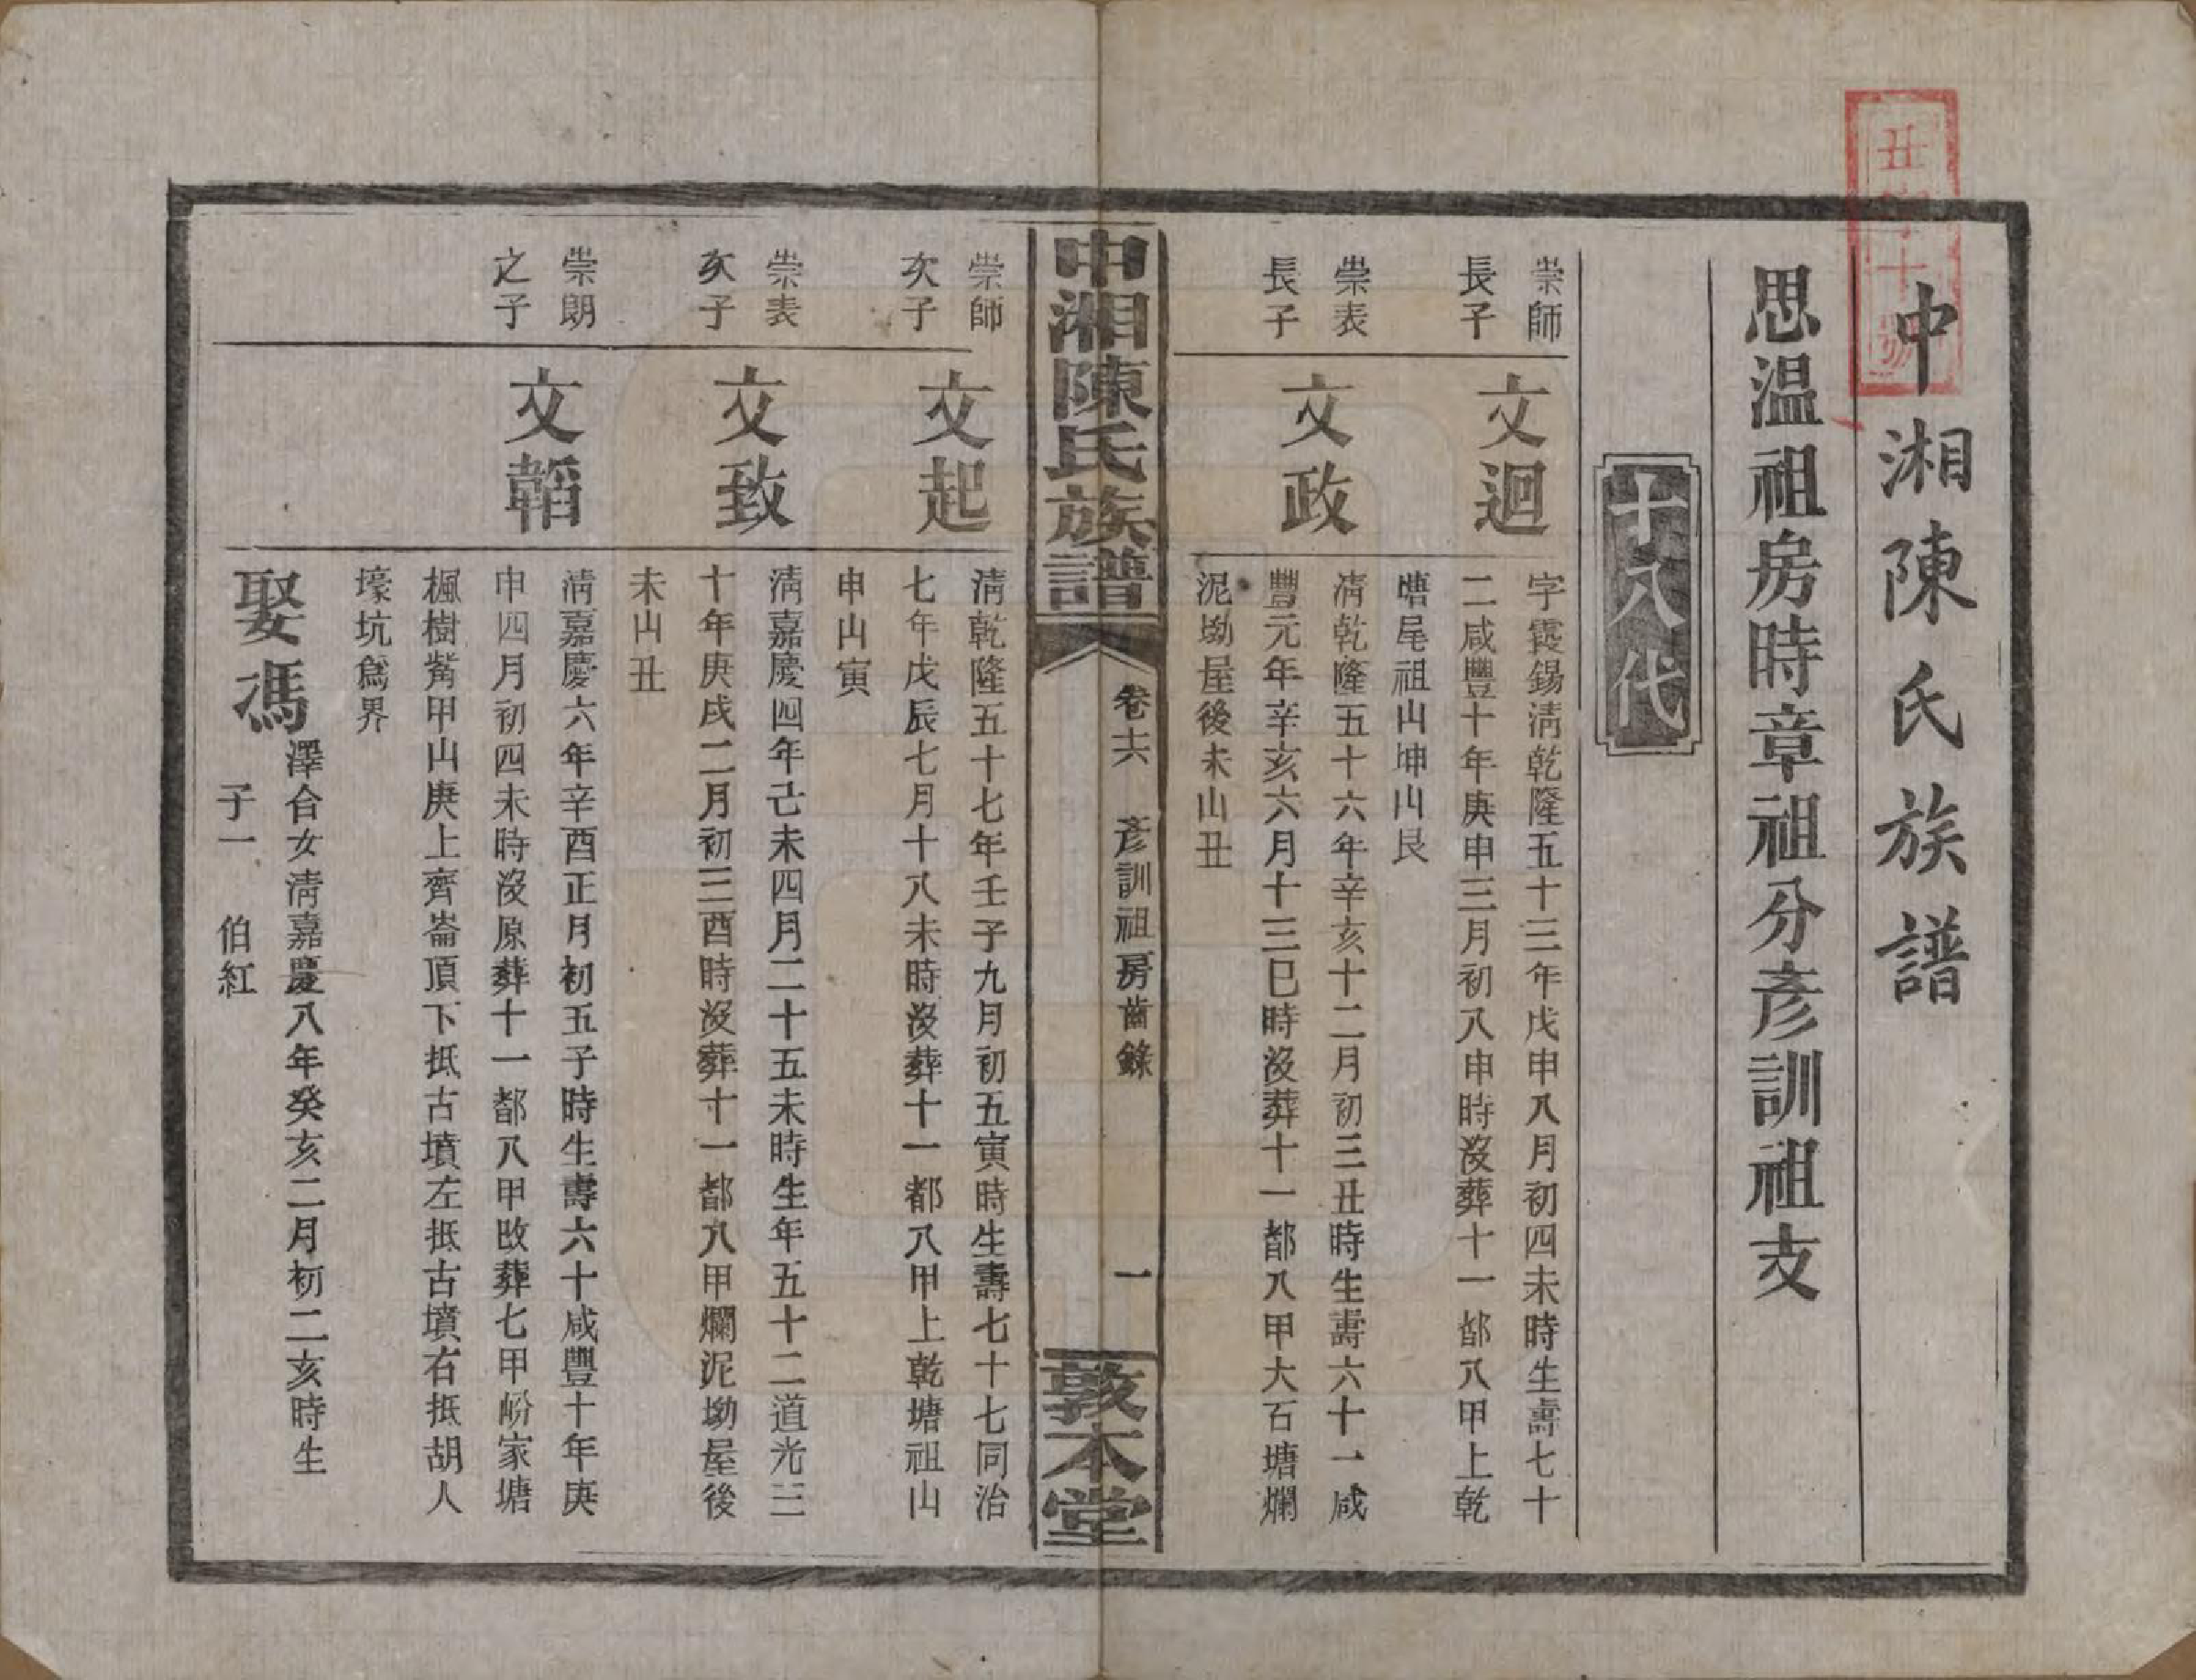 中湘陳氏族譜
思溫祖房時章祖分彥訓祖支
十八代
崇師
長子
文迴
字霞錫淸乾隆五十三年戊申八月初四未時生壽七十
二咸豐十年庚申三月初八申時沒葬十一都八甲上乾
塘尾祖山坤山艮
崇表
長子
文政
淸乾隆五十六年辛亥十二月初三丑時生壽六十一咸
豐元年辛亥六月十三巳時沒葬十一都八甲大石塘爛
泥坳屋後未山丑
中湘陳氏族譜
卷六 彥訓祖房齒錄 一
敦本堂
崇師
次子
文起
淸乾隆五十七年壬子九月初五寅時生壽七十七同治
七年戊辰七月十八未時沒葬十一都八甲上乾塘祖山
申山寅
崇表
次子
文致
淸嘉慶四年己未四月二十五未時生年五十二道光三
十年庚戌二月初三酉時沒葬十一都八甲爛泥坳屋後
未山丑
崇朗
之子
文韜
淸嘉慶六年辛酉正月初五子時生壽六十咸豐十年庚
申四月初四未時沒原葬十一都八甲改葬七甲峁家塘
楓樹觜甲山庚上齊崙頂下抵古墳左抵古墳右抵胡人
壕坑爲界
娶馮
澤合女淸嘉慶八年癸亥二月初二亥時生
子一 伯紅